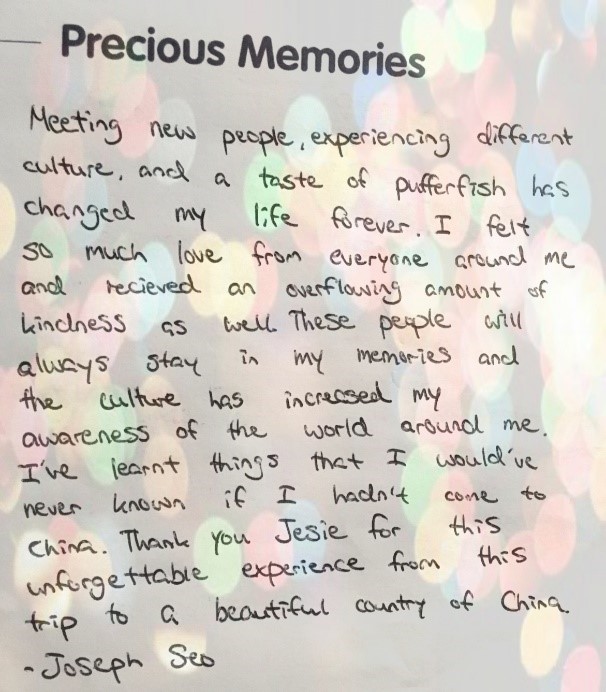 Precious Memories
Meeting new people, experiencing different
culture, and a taste of pufferfish has
changed my life forever. I felt
so much love from everyone around me
and recieved an overflowing amount of
kindness as well. These people will
always stay in my memories and
the culture has increased my
awareness of the world around me.
I've learnt things that I would've
never known if I hadn't come to
China. Thank you Jesie for this
unforgettable experience from this
trip to a beautiful country of China.
- Joseph Seo